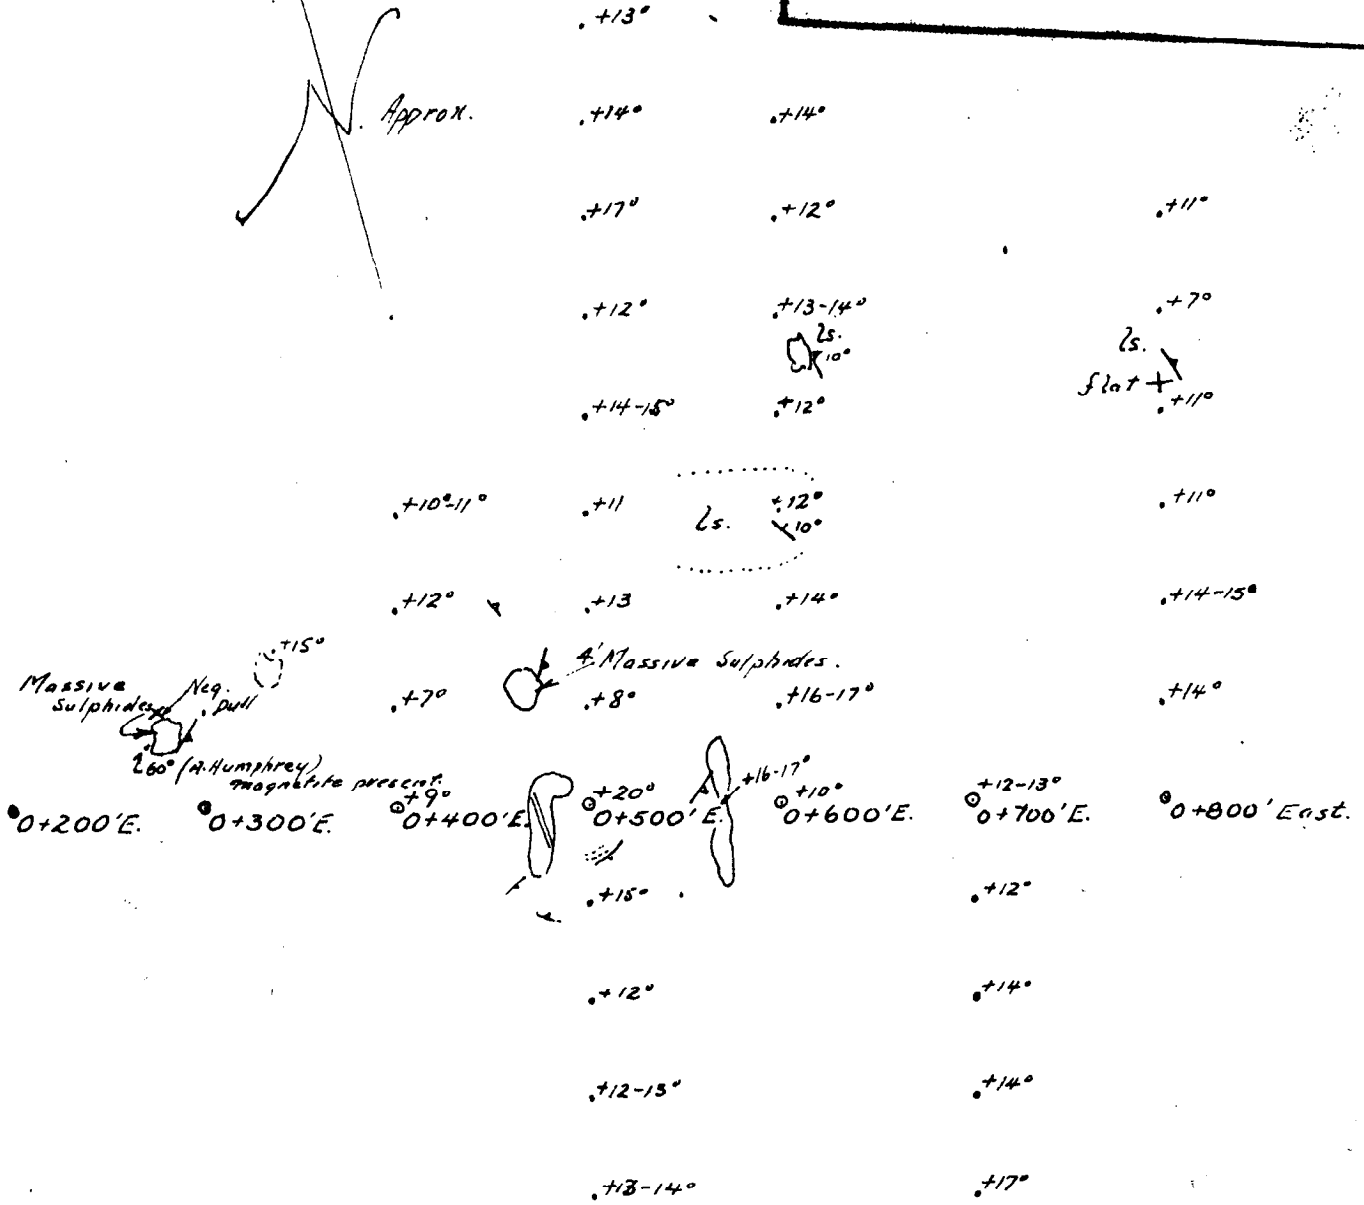 +13°
N
Approx.
+14° +14°
+17° +12° +11°
+12° +13-14° +7°
ls.
10°
ls.
flat
+14-15° +12° +11°
+10°-11° +11 +12° +11°
ls. 10°
+12° +13 +14° +14-15°
+15°
4' Massive Sulphides.
Massive
Sulphides
Neg.
Pull
+7° +8° +16-17° +14°
60° (A. Humphrey)
magnetite present.
+16-17°
+9° +20° +10° +12-13°
0+200'E. 0+300'E. 0+400'E. 0+500'E. 0+600'E. 0+700'E. 0+800' East.
+15° +12°
+12° +14°
+12-13° +14°
+13-14° +17°